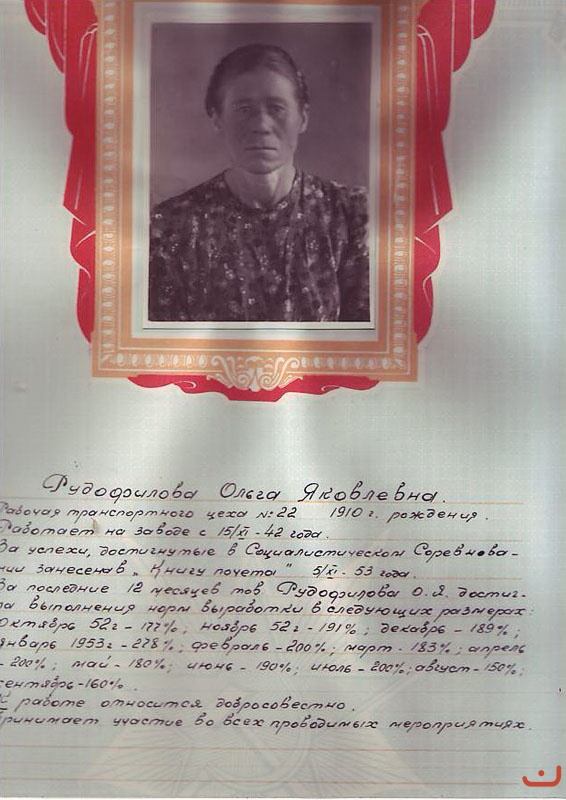 Рудофилова Ольга Яковлевна.
Рабочая транспортного цеха №22 1910 г. рождения.
Работает на заводе с 15/XI-42 года.
За успехи, достигнутые в Социалистическом Соревнова-
нии занесена в „Книгу почета" 5/XI-53 года.
За последние 12 месяцев тов. Рудофилова О.Я. достиг-
ла выполнения норм выработки в следующих размерах:
Октябрь 52г - 177%; ноябрь 52г - 191%; декабрь - 189%;
январь 1953г - 278%; февраль - 200%; март - 183%; апрель
- 200%; май - 180%; июнь - 190%; июль - 200%; август - 150%;
сентябрь - 160%.
К работе относится добросовестно.
Принимает участие во всех проводимых мероприятиях.